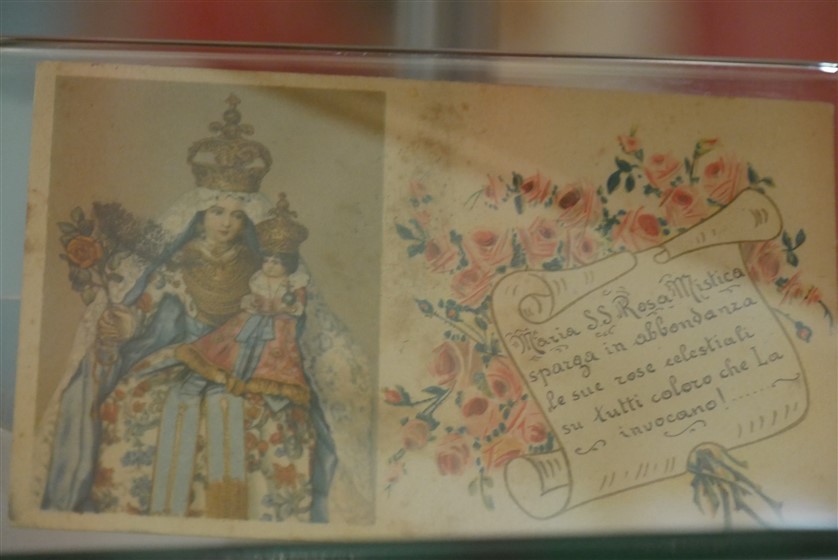 Maria SS. Rosa Mistica
sparga in abbondanza
le sue rose celestiali
su tutti coloro che La
invocano!......